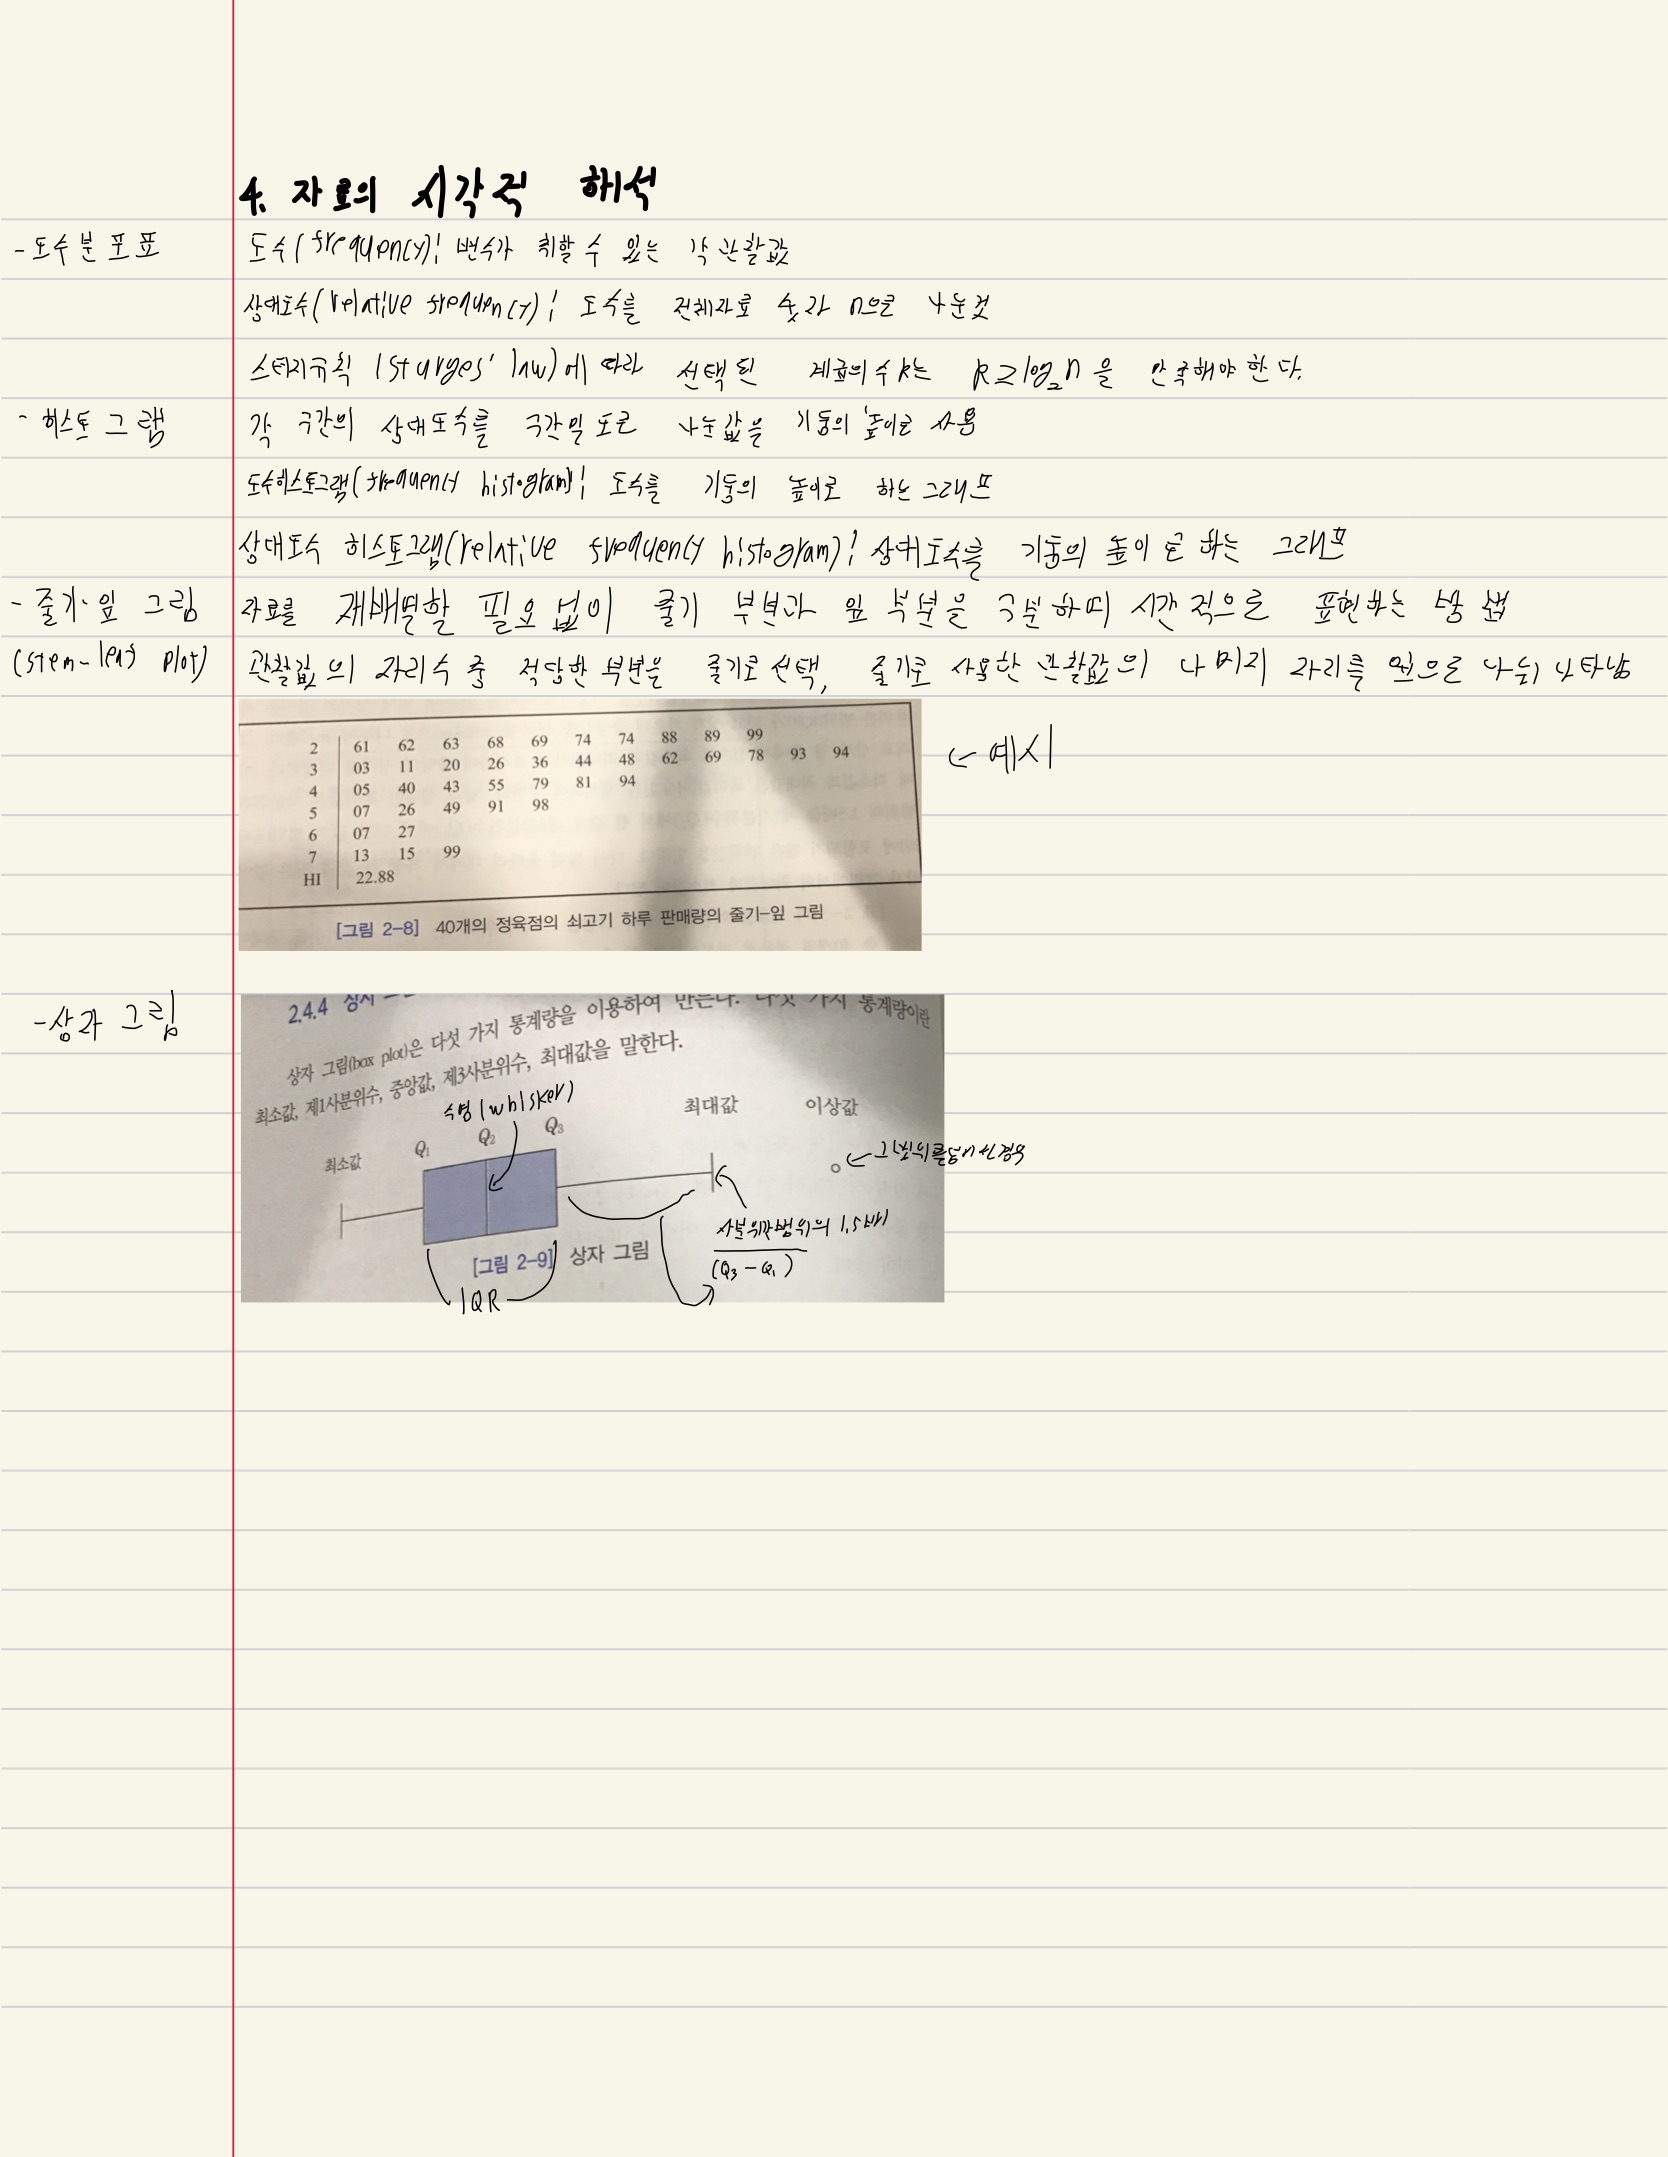 4. 자료의 시각적 해석
- 도수분포표
도수(frequency); 변수가 취할 수 있는 각 관찰값
상대도수(relative frequency); 도수를 전체자료 숫자 n으로 나눈것
스터지규칙 (Sturges' law)에 따라 선택된 계급의 수 k는 k≥log₂n을 만족해야 한다.
- 히스토그램
각 구간의 상대도수를 구간밀도로 나눈값을 기둥의 높이로 사용
도수히스토그램(frequency histogram); 도수를 기둥의 높이로 하는 그래프
상대도수 히스토그램(relative frequency histogram); 상대도수를 기둥의 높이로 하는 그래프
- 줄기-잎 그림
(stem-leaf plot)
자료를 재배열할 필요 없이 줄기 부분과 잎 부분을 구분하며 시각적으로 표현하는 방법
관찰값의 자리수 중 적당한 부분을 줄기로 선택, 줄기로 사용한 관찰값의 나머지 자리를 잎으로 나눠 나타냄
2 61 62 63 68 69 74 74 88 89 99
3 03 11 20 26 36 44 48 62 69 78 93 94
4 05 40 43 55 79 81 94
5 07 26 49 91 98
6 07 27
7 13 15 99
HI 22.88
[그림 2-8] 40개의 정육점의 쇠고기 하루 판매량의 줄기-잎 그림
← 예시
- 상자 그림
2.4.4 상자
상자 그림(box plot)은 다섯 가지 통계량을 이용하여 만든다. 다섯 가지 통계량이란
최소값, 제1사분위수, 중앙값, 제3사분위수, 최대값을 말한다.
수염(whisker)
최소값 Q₁ Q₂ Q₃ 최대값 이상값
← 그 범위를 넘어선경우
사분위간범위의 1.5배
(Q₃ - Q₁)
[그림 2-9] 상자 그림
IQR